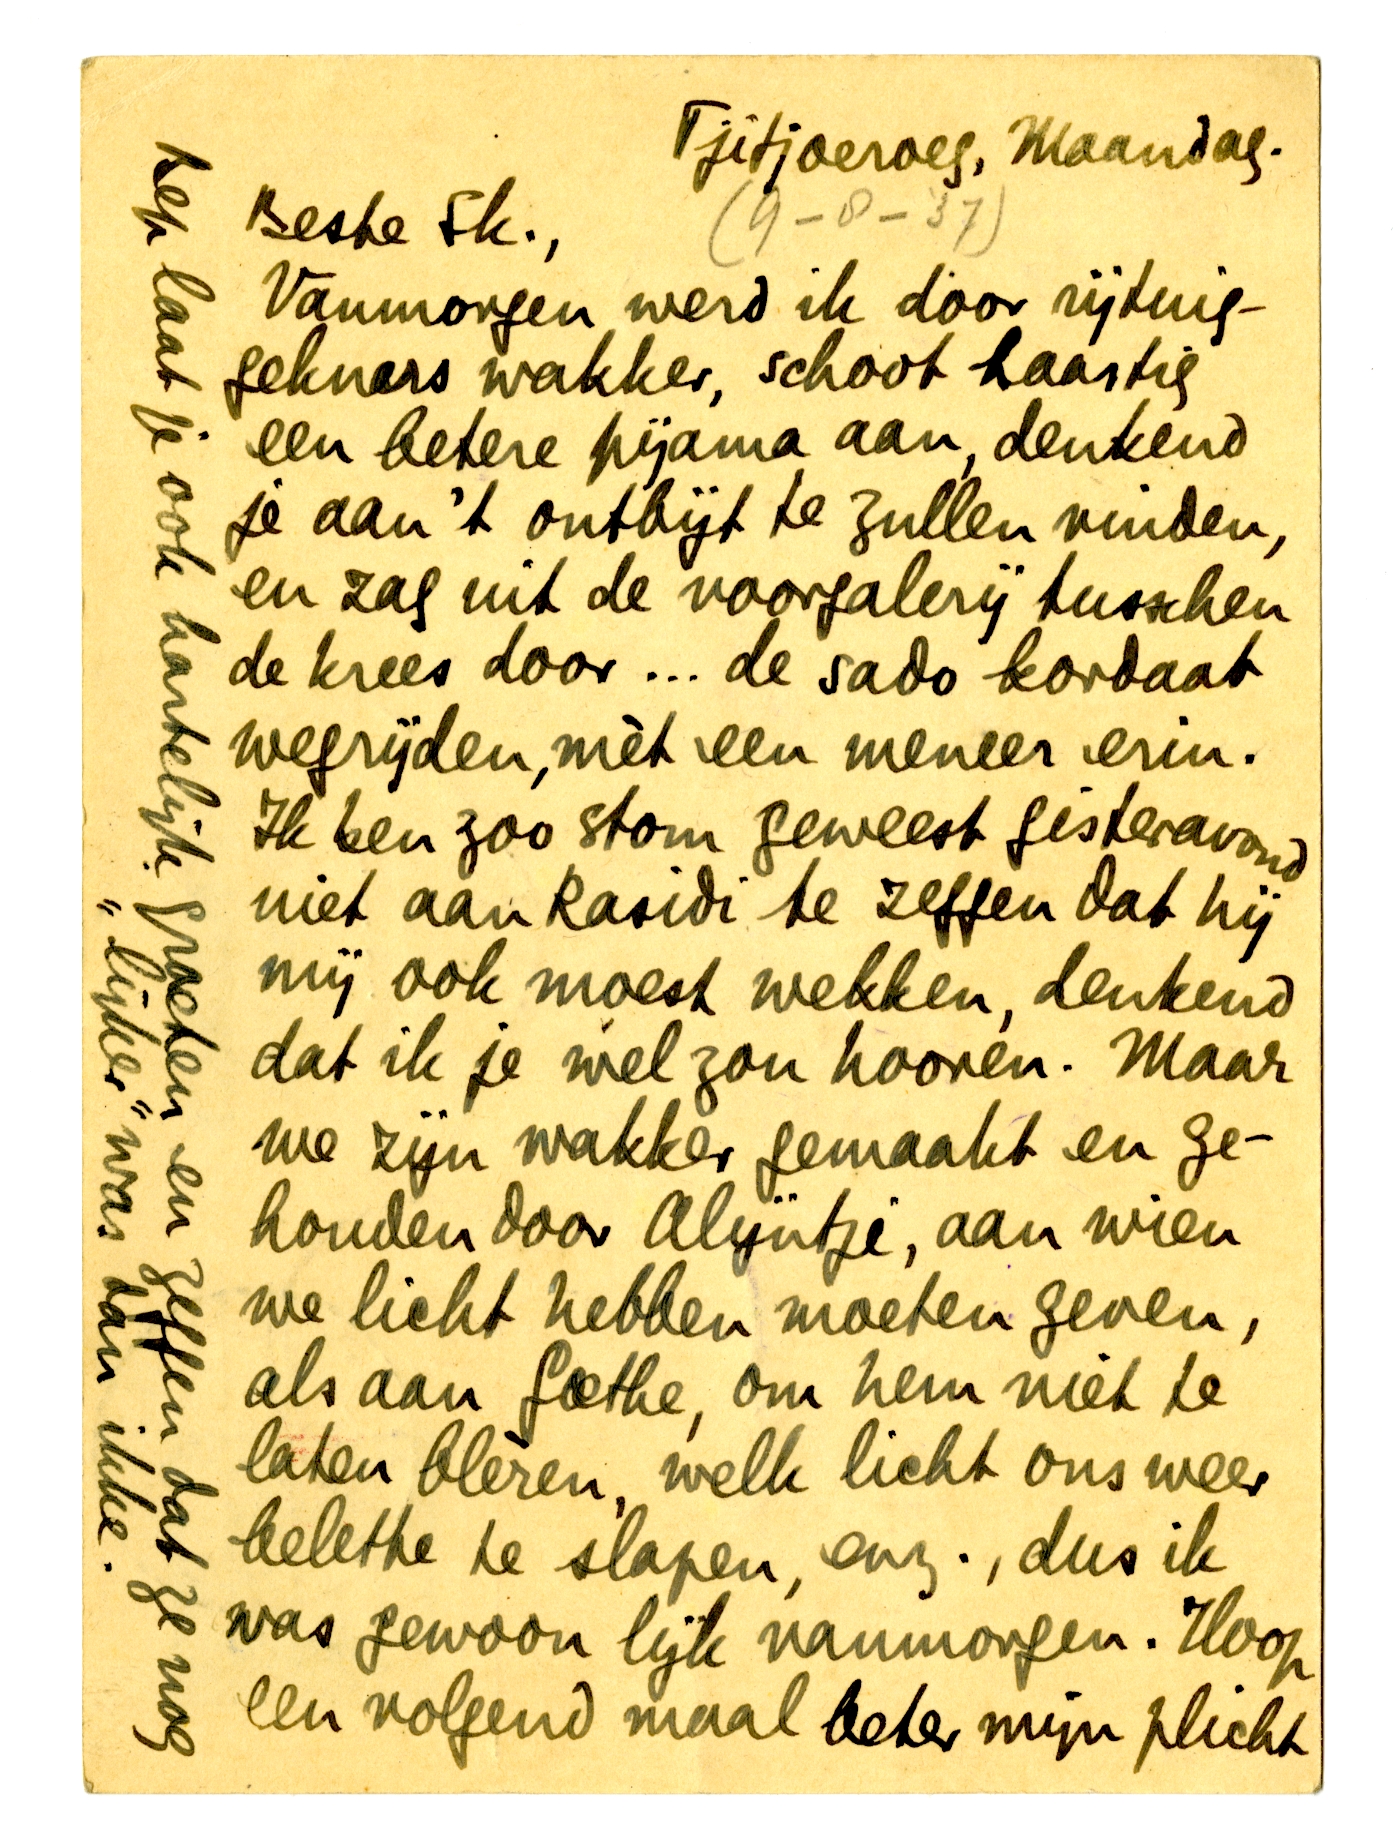 Tjitjoeroeg, Maandag.
(9-8-37)
Beste Sk.,
Vanmorgen werd ik door rijtuig-
geknars wakker, schoot haastig
een betere pijama aan, denkend
je aan 't ontbijt te zullen vinden,
en zag uit de voorgalerij tusschen
de krees door ... de sado kordaat
wegrijden, mèt een meneer erin.
Ik ben zoo stom geweest gisteravond
niet aan Rasidi te zeggen dat hij
mij ook moest wekken, denkend
dat ik je wel zou hooren. Maar
we zijn wakker gemaakt en ge-
houden door Alijntje, aan wien
we licht hebben moeten geven,
als aan Goethe, om hem niet te
laten blèren, welk licht ons weer
belette te slapen, enz., dus ik
was gewoon lijk vanmorgen. Hoop
een volgend maal beter mijn plicht
laat je ook hartelijk groeten en zeggen dat ze nog
"lijker" was dan ikke.